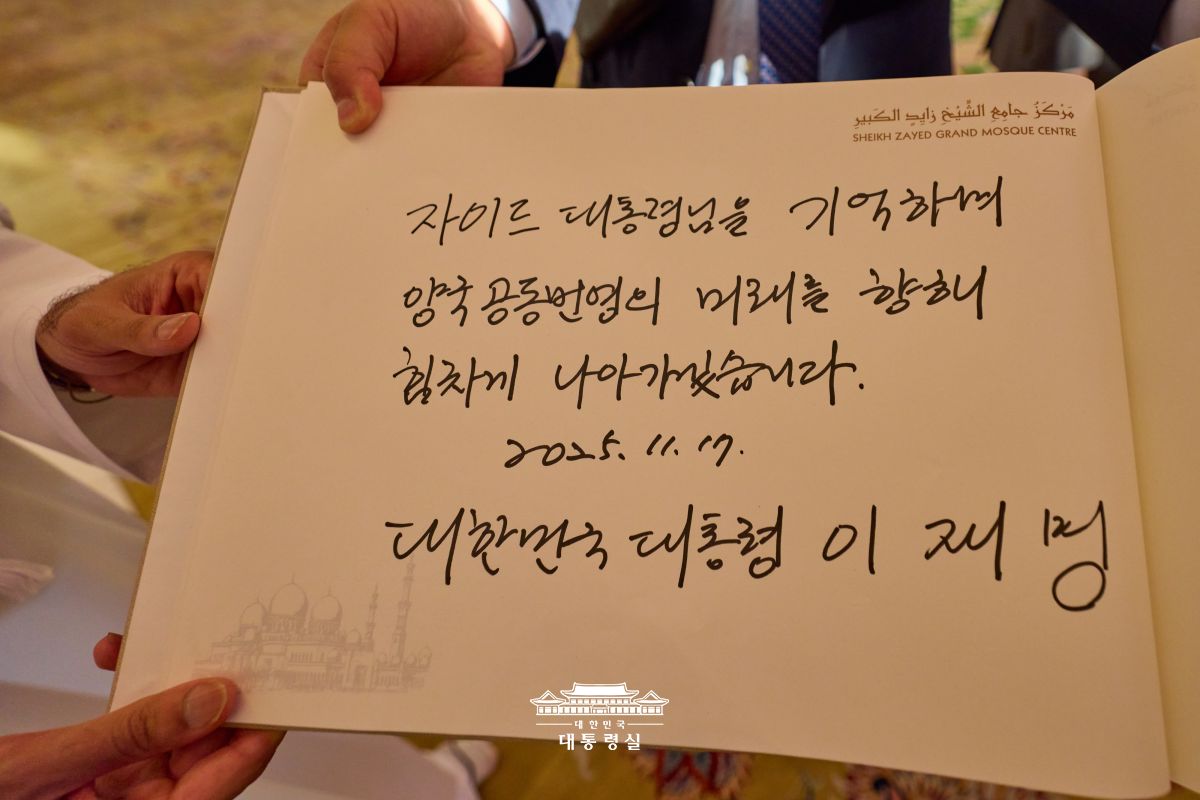 مَرْكَزُ جَامِعِ الشَّيْخِ زَايِدِ الكَبِيرِ
SHEIKH ZAYED GRAND MOSQUE CENTRE
자이드 대통령님을 기억하며
양국 공동번영의 미래를 향해
힘차게 나아가겠습니다.
2025. 11. 17.
대한민국 대통령 이 재 명
대한민국
대통령실